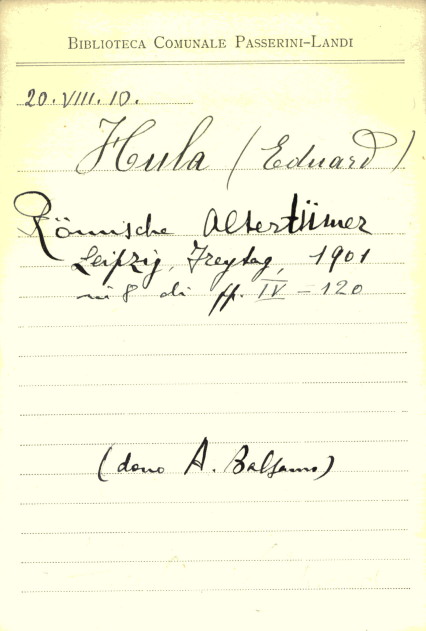 BIBLIOTECA COMUNALE PASSERINI-LANDI
20.VIII.10.
Hula (Eduard)
Römische Altertümer
Leipzig, Freytag, 1901
in 8 di pp. IV - 120
(dono A. Balsamo)